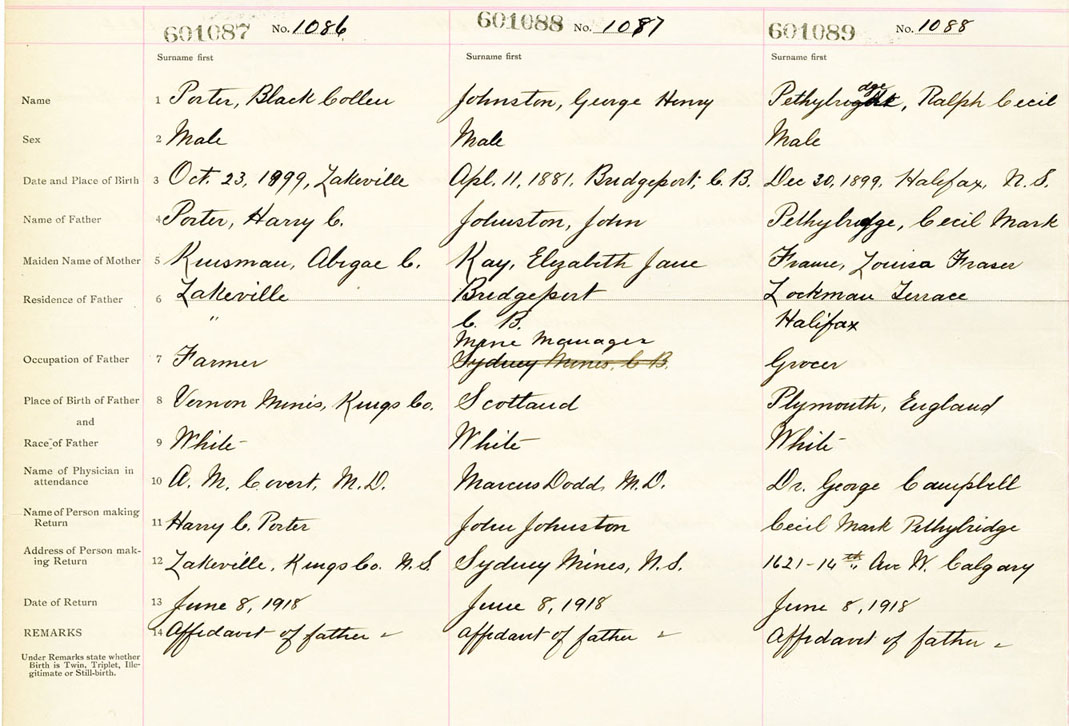 601087 No. 1086 601088 No. 1087 601089 No. 1088
Surname first Surname first Surname first
Name 1 Porter, Black Collen Johnston, George Henry Pethybridge, Ralph Cecil
Sex 2 Male Male Male
Date and Place of Birth 3 Oct. 23, 1899, Lakeville Apl. 11, 1881, Bridgeport, C. B. Dec 20, 1899. Halifax, N. S.
Name of Father 4 Porter, Harry C. Johnston, John Pethybridge, Cecil Mark
Maiden Name of Mother 5 Kinsman, Abigae C. Kay, Elizabeth Jane Frame, Louisa Fraser
Residence of Father 6 Lakeville Bridgeport Lockman Terrace
" C. B. Halifax
Mine Manager
Occupation of Father 7 Farmer Sydney Mines, C B. Grocer
Place of Birth of Father 8 Vernon Mines, Kings Co. Scotland Plymouth, England
and
Race of Father 9 White White White
Name of Physician in
attendance 10 A. M. Covert, M.D. Marcus Dodd, M.D. Dr. George Campbell
Name of Person making
Return 11 Harry C. Porter John Johnston Cecil Mark Pethybridge
Address of Person mak-
ing Return 12 Lakeville, Kings Co. N.S Sydney Mines, N.S. 1621-14th Ave W. Calgary
Date of Return 13 June 8, 1918 June 8, 1918 June 8, 1918
REMARKS 14 Affidavit of father Affidavit of father Affidavit of father
Under Remarks state whether
Birth is Twin, Triplet, Ille-
gitimate or Still-birth.